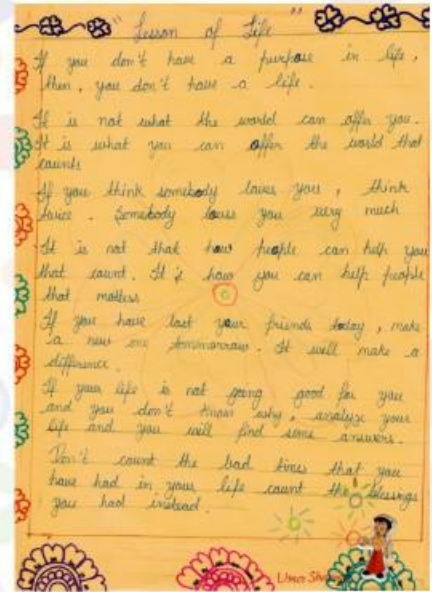 "Lesson of Life"
If you don't have a purpose in life,
then, you don't have a life.
It is not what the world can offer you.
It is what you can offer the world that
counts
If you think somebody loves you, think
twice. Somebody loves you very much
It is not that how people can help you
that count. It is how you can help people
that matters
If you have lost your friends today, make
a new one tommorrow. It will make a
difference.
If your life is not going good for you
and you don't know why, analyse your
life and you will find some answers.
Don't count the bad times that you
have had in your life count the blessings
you had instead.
Uma